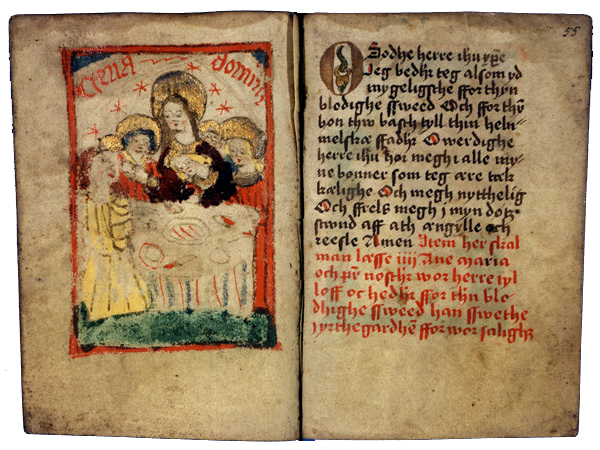 Cena domini
55
O Sodhe herre ihu xpe
Jeg bedher teg alsom yd
mygeligsthe ffor thyn
blodighe ssweed Och ffor thn
bon thw badh tyll thin hely
melskæ ffadher O werdighe
herre ihu hor megh i alle my
ne bonner som teg ære tak
kælighe Och megh nytthelig
Och ffrels megh j myn dotz
stwnd aff ath ængylle och
reesle Amen Item her skal
man læsse iiij Aue maria
och pr nosthr wor herre tyl
loff oc hedhr ffor thn blo
dhighe ssweed han sswethe
i yrthegardhen ffor wor salighz